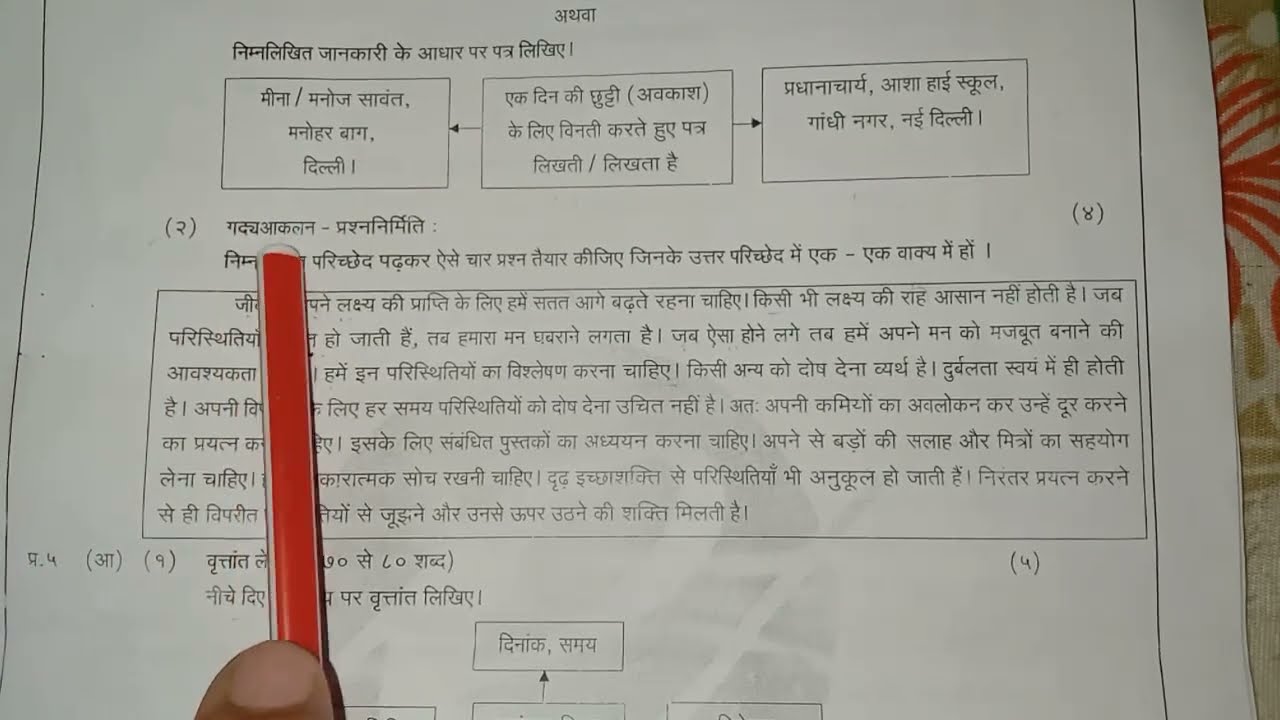 अथवा
निम्नलिखित जानकारी के आधार पर पत्र लिखिए।
मीना / मनोज सावंत,
मनोहर बाग,
दिल्ली।
एक दिन की छुट्टी (अवकाश)
के लिए विनती करते हुए पत्र
लिखती / लिखता है
प्रधानाचार्य, आशा हाई स्कूल,
गांधी नगर, नई दिल्ली।
(२) गद्यआकलन - प्रश्ननिर्मिति : (४)
परिच्छेद पढ़कर ऐसे चार प्रश्न तैयार कीजिए जिनके उत्तर परिच्छेद में एक - एक वाक्य में हों ।
लक्ष्य की प्राप्ति के लिए हमें सतत आगे बढ़ते रहना चाहिए। किसी भी लक्ष्य की राह आसान नहीं होती है। जब
हो जाती हैं, तब हमारा मन घबराने लगता है। जब ऐसा होने लगे तब हमें अपने मन को मजबूत बनाने की
आवश्यकता । हमें इन परिस्थितियों का विश्लेषण करना चाहिए। किसी अन्य को दोष देना व्यर्थ है। दुर्बलता स्वयं में ही होती
है। अपनी लिए हर समय परिस्थितियों को दोष देना उचित नहीं है। अतः अपनी कमियों का अवलोकन कर उन्हें दूर करने
का प्रयत्न इसके लिए संबंधित पुस्तकों का अध्ययन करना चाहिए। अपने से बड़ों की सलाह और मित्रों का सहयोग
लेना चाहिए। सोच रखनी चाहिए। दृढ़ इच्छाशक्ति से परिस्थितियाँ भी अनुकूल हो जाती हैं। निरंतर प्रयत्न करने
से ही विपरीत से जूझने और उनसे ऊपर उठने की शक्ति मिलती है।
प्र.५ (आ) (१) वृत्तांत ७० से ८० शब्द) (५)
नीचे दिए पर वृत्तांत लिखिए।
दिनांक, समय